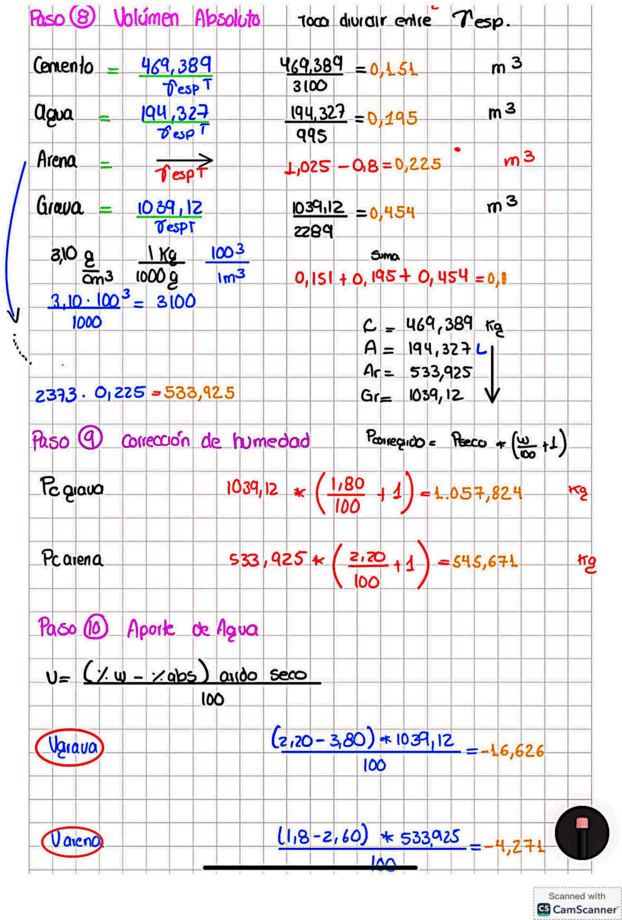 Paso ⑧ Volúmen Absoluto Toca dividir entre γesp.
Cemento = 469,389 / γespT 469,389 / 3100 = 0,151 m³
Agua = 194,327 / γespT 194,327 / 995 = 0,195 m³
Arena = → γespT 1,025 - 0,8 = 0,225 m³
Grava = 1039,12 / γespT 1039,12 / 2289 = 0,454 m³
3,10 g/cm³ 1 Kg / 1000 g 100³ / 1m³
Suma
0,151 + 0,195 + 0,454 = 0,8
3,10 · 100³ / 1000 = 3100
C = 469,389 Kg
A = 194,327 L
Ar = 533,925
Gr = 1039,12
2373 · 0,225 = 533,925
Paso ⑨ Corrección de humedad Pcorregido = Pseco * (w/100 + 1)
Pc grava 1039,12 * (1,80/100 + 1) = 1.057,824 Kg
Pc arena 533,925 * (2,20/100 + 1) = 545,671 Kg
Paso ⑩ Aporte de Agua
U = (% w - % abs) arido seco / 100
Ugrava (2,20 - 3,80) * 1039,12 / 100 = -16,626
Uarena (1,8 - 2,60) * 533,925 / 100 = -4,271
Scanned with
CS CamScanner